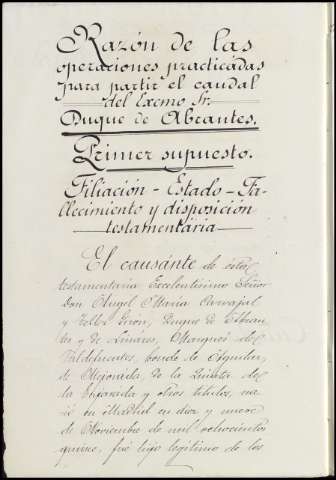 Razón de las
operaciones practicadas
para partir el caudal
del Excmo Sr.
Duque de Abrantes.
Primer supuesto.
Filiación - Estado - Fa-
llecimiento y disposición
testamentaria
El causante de esta
testamentaria Excelentísimo Señor
Don Angel Maria Carvajal
y Tellez Girón, Duque de Abran-
tes y de Linares, Marqués de
Valdefuentes, Conde de Aguilar,
de Mejorada, de la Quinta de
la Enjarada y otros titulos, na-
ció en Madrid en diez y nueve
de Noviembre de mil ochocientos
quince, fué hijo legitimo de los